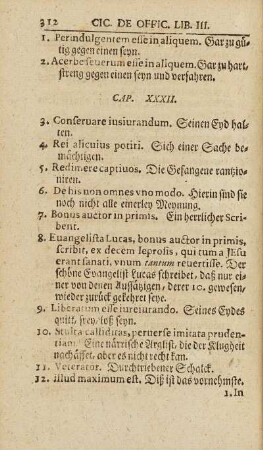 312 CIC. DE OFFIC. LIB. III.
1. Perindulgentem esse in aliquem. Gar zu gü-
tig gegen einen seyn.
2. Acerbe severum esse in aliquem. Gar zu hart-
streng gegen einen seyn und verfahren.
CAP. XXXII.
3. Conservare iusiurandum. Seinen Eyd hal-
ten.
4. Rei alicuius potiri. Sich einer Sache be-
mächtigen.
5. Redimere captiuos. Die Gefangene rantzio-
niren.
6. De his non omnes vno modo. Hierin sind sie
noch nicht alle einerley Meynung.
7. Bonus auctor in primis. Ein herrlicher Scri-
bent.
8. Euangelista Lucas, bonus auctor in primis,
scribit, ex decem leprosis, qui tum a JEsu
erant sanati, vnum tantum reuertisse. Der
schöne Evangelist Lucas schreibet, daß nur ei-
ner von denen Aussätzigen, derer 10. gewesen,
wieder zurück gekehret seye.
9. Liberatum esse iureiurando. Seines Eydes
quitt, frey, loß seyn.
10. Stulta calliditas, peruerse imitata pruden-
tiam. Eine närrische Arglist, die der Klugheit
nachäffet, aber es nicht recht kan.
11. Veterator. Durchtriebener Schalck.
12. Illud maximum est. Diß ist das vornehmste.
1. In